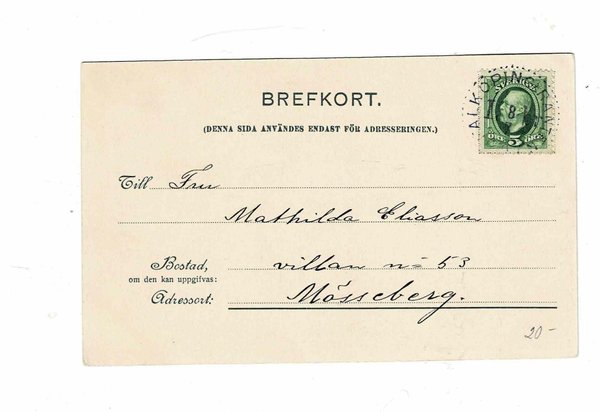 SVERIGE
ÖRE 5 ÖRE
BREFKORT.
(DENNA SIDA ANVÄNDES ENDAST FÖR ADRESSERINGEN.)
Till Fru
Mathilda Eliasson
Bostad, villan nº 53
om den kan uppgifvas:
Adressort: Mösseberg.
20-